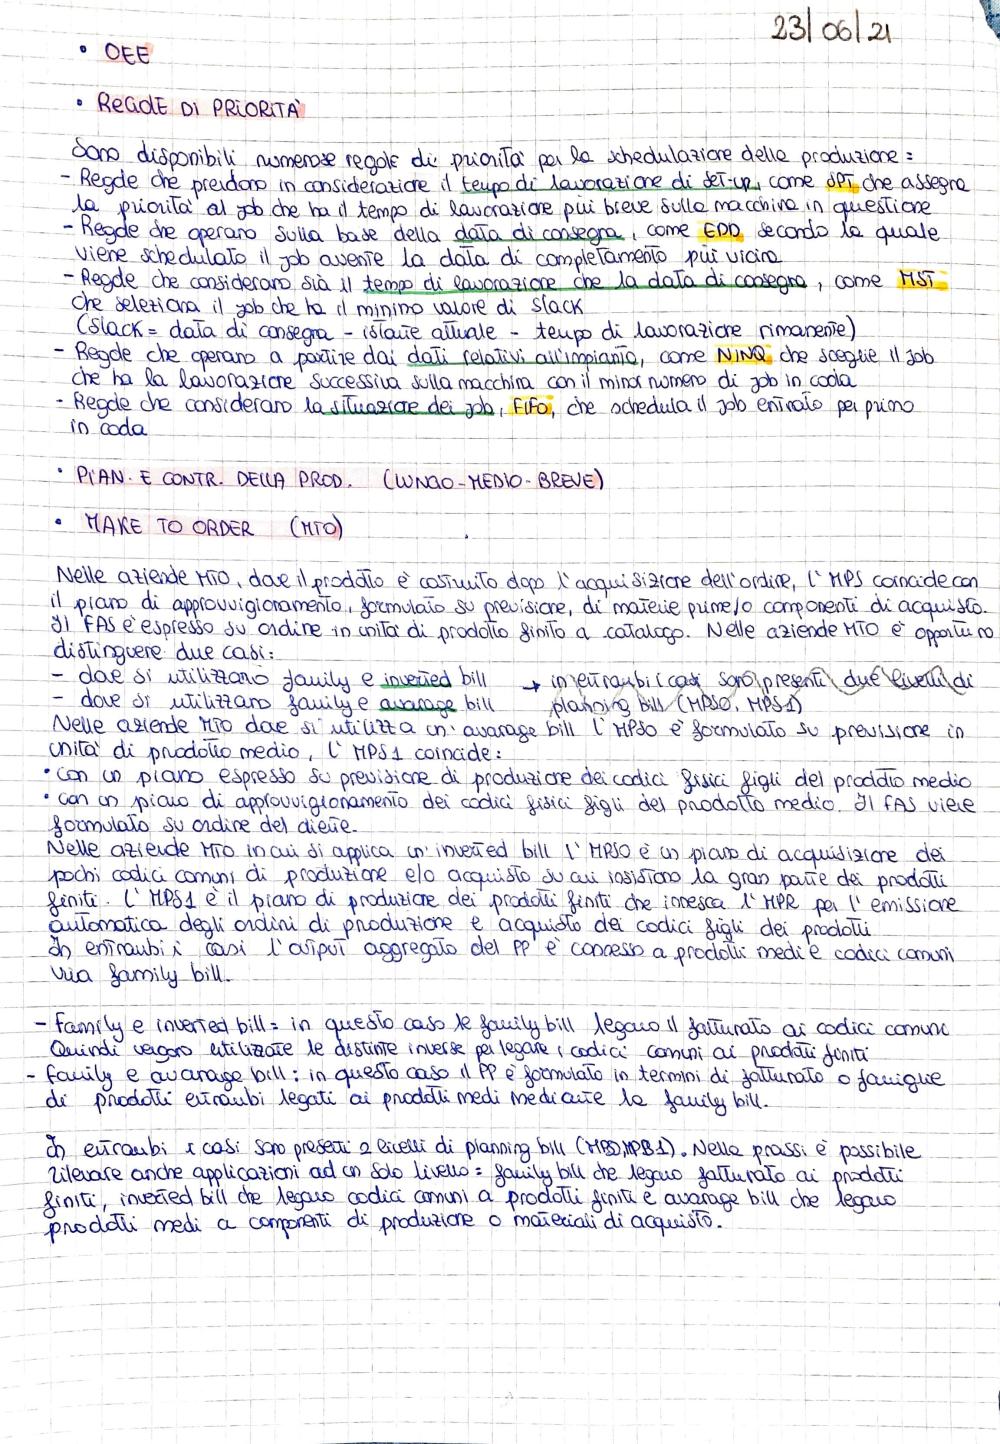 23/06/21
• OEE
• REGOLE DI PRIORITÀ
Sono disponibili numerose regole di priorità per la schedulazione della produzione:
- Regole che prendono in considerazione il tempo di lavorazione di set-up, come SPT che assegna
la priorità al job che ha il tempo di lavorazione più breve sulla macchina in questione
- Regole che operano sulla base della data di consegna, come EDD secondo la quale
viene schedulato il job avente la data di completamento più vicina
- Regole che considerano sia il tempo di lavorazione che la data di consegna, come MST
che seleziona il job che ha il minimo valore di slack
(Slack = data di consegna - istante attuale - tempo di lavorazione rimanente)
- Regole che operano a partire dai dati relativi all'impianto, come NINQ che sceglie il job
che ha la lavorazione successiva sulla macchina con il minor numero di job in coda
- Regole che considerano la situazione dei job, FIFO, che schedula il job entrato per primo
in coda
• PIAN. E CONTR. DELLA PROD. (LUNGO-MEDIO-BREVE)
• MAKE TO ORDER (MTO)
Nelle aziende MTO, dove il prodotto è costruito dopo l'acquisizione dell'ordine, l'MPS coincide con
il piano di approvvigionamento, formulato su previsione, di materie prime/o componenti di acquisto.
Il FAS è espresso su ordine in unità di prodotto finito a catalogo. Nelle aziende MTO è opportuno
distinguere due casi:
- dove si utilizzano family e inverted bill → in entrambi i casi sono presenti due livelli di
- dove si utilizzano family e avarage bill planning bill (MPS0, MPS1)
Nelle aziende MTO dove si utilizza un' avarage bill l'MPS0 è formulato su previsione in
unità di prodotto medio, l'MPS1 coincide:
• con un piano espresso su previsione di produzione dei codici fisici figli del prodotto medio
• con un piano di approvvigionamento dei codici fisici figli del prodotto medio. Il FAS viene
formulato su ordine del cliente.
Nelle aziende MTO in cui si applica un' inverted bill l'MPS0 è un piano di acquisizione dei
pochi codici comuni di produzione e/o acquisto su cui insistono la gran parte dei prodotti
finiti. L'MPS1 è il piano di produzione dei prodotti finiti che innesca l'MPR per l'emissione
automatica degli ordini di produzione e acquisto dei codici figli dei prodotti
In entrambi i casi l'output aggregato del PP è connesso a prodotti medi e codici comuni
via family bill.
- Family e inverted bill: in questo caso le family bill legano il fatturato ai codici comuni
Quindi vengono utilizzate le distinte inverse per legare i codici comuni ai prodotti finiti
- Family e avarage bill: in questo caso il PP è formulato in termini di fatturato o famiglie
di prodotti entrambi legati ai prodotti medi mediante la family bill.
In entrambi i casi sono presenti 2 livelli di planning bill (MPS0, MPS1). Nella prassi è possibile
rilevare anche applicazioni ad un solo livello: family bill che legano fatturato ai prodotti
finiti, inverted bill che legano codici comuni a prodotti finiti e avarage bill che legano
prodotti medi a componenti di produzione o materiali di acquisto.